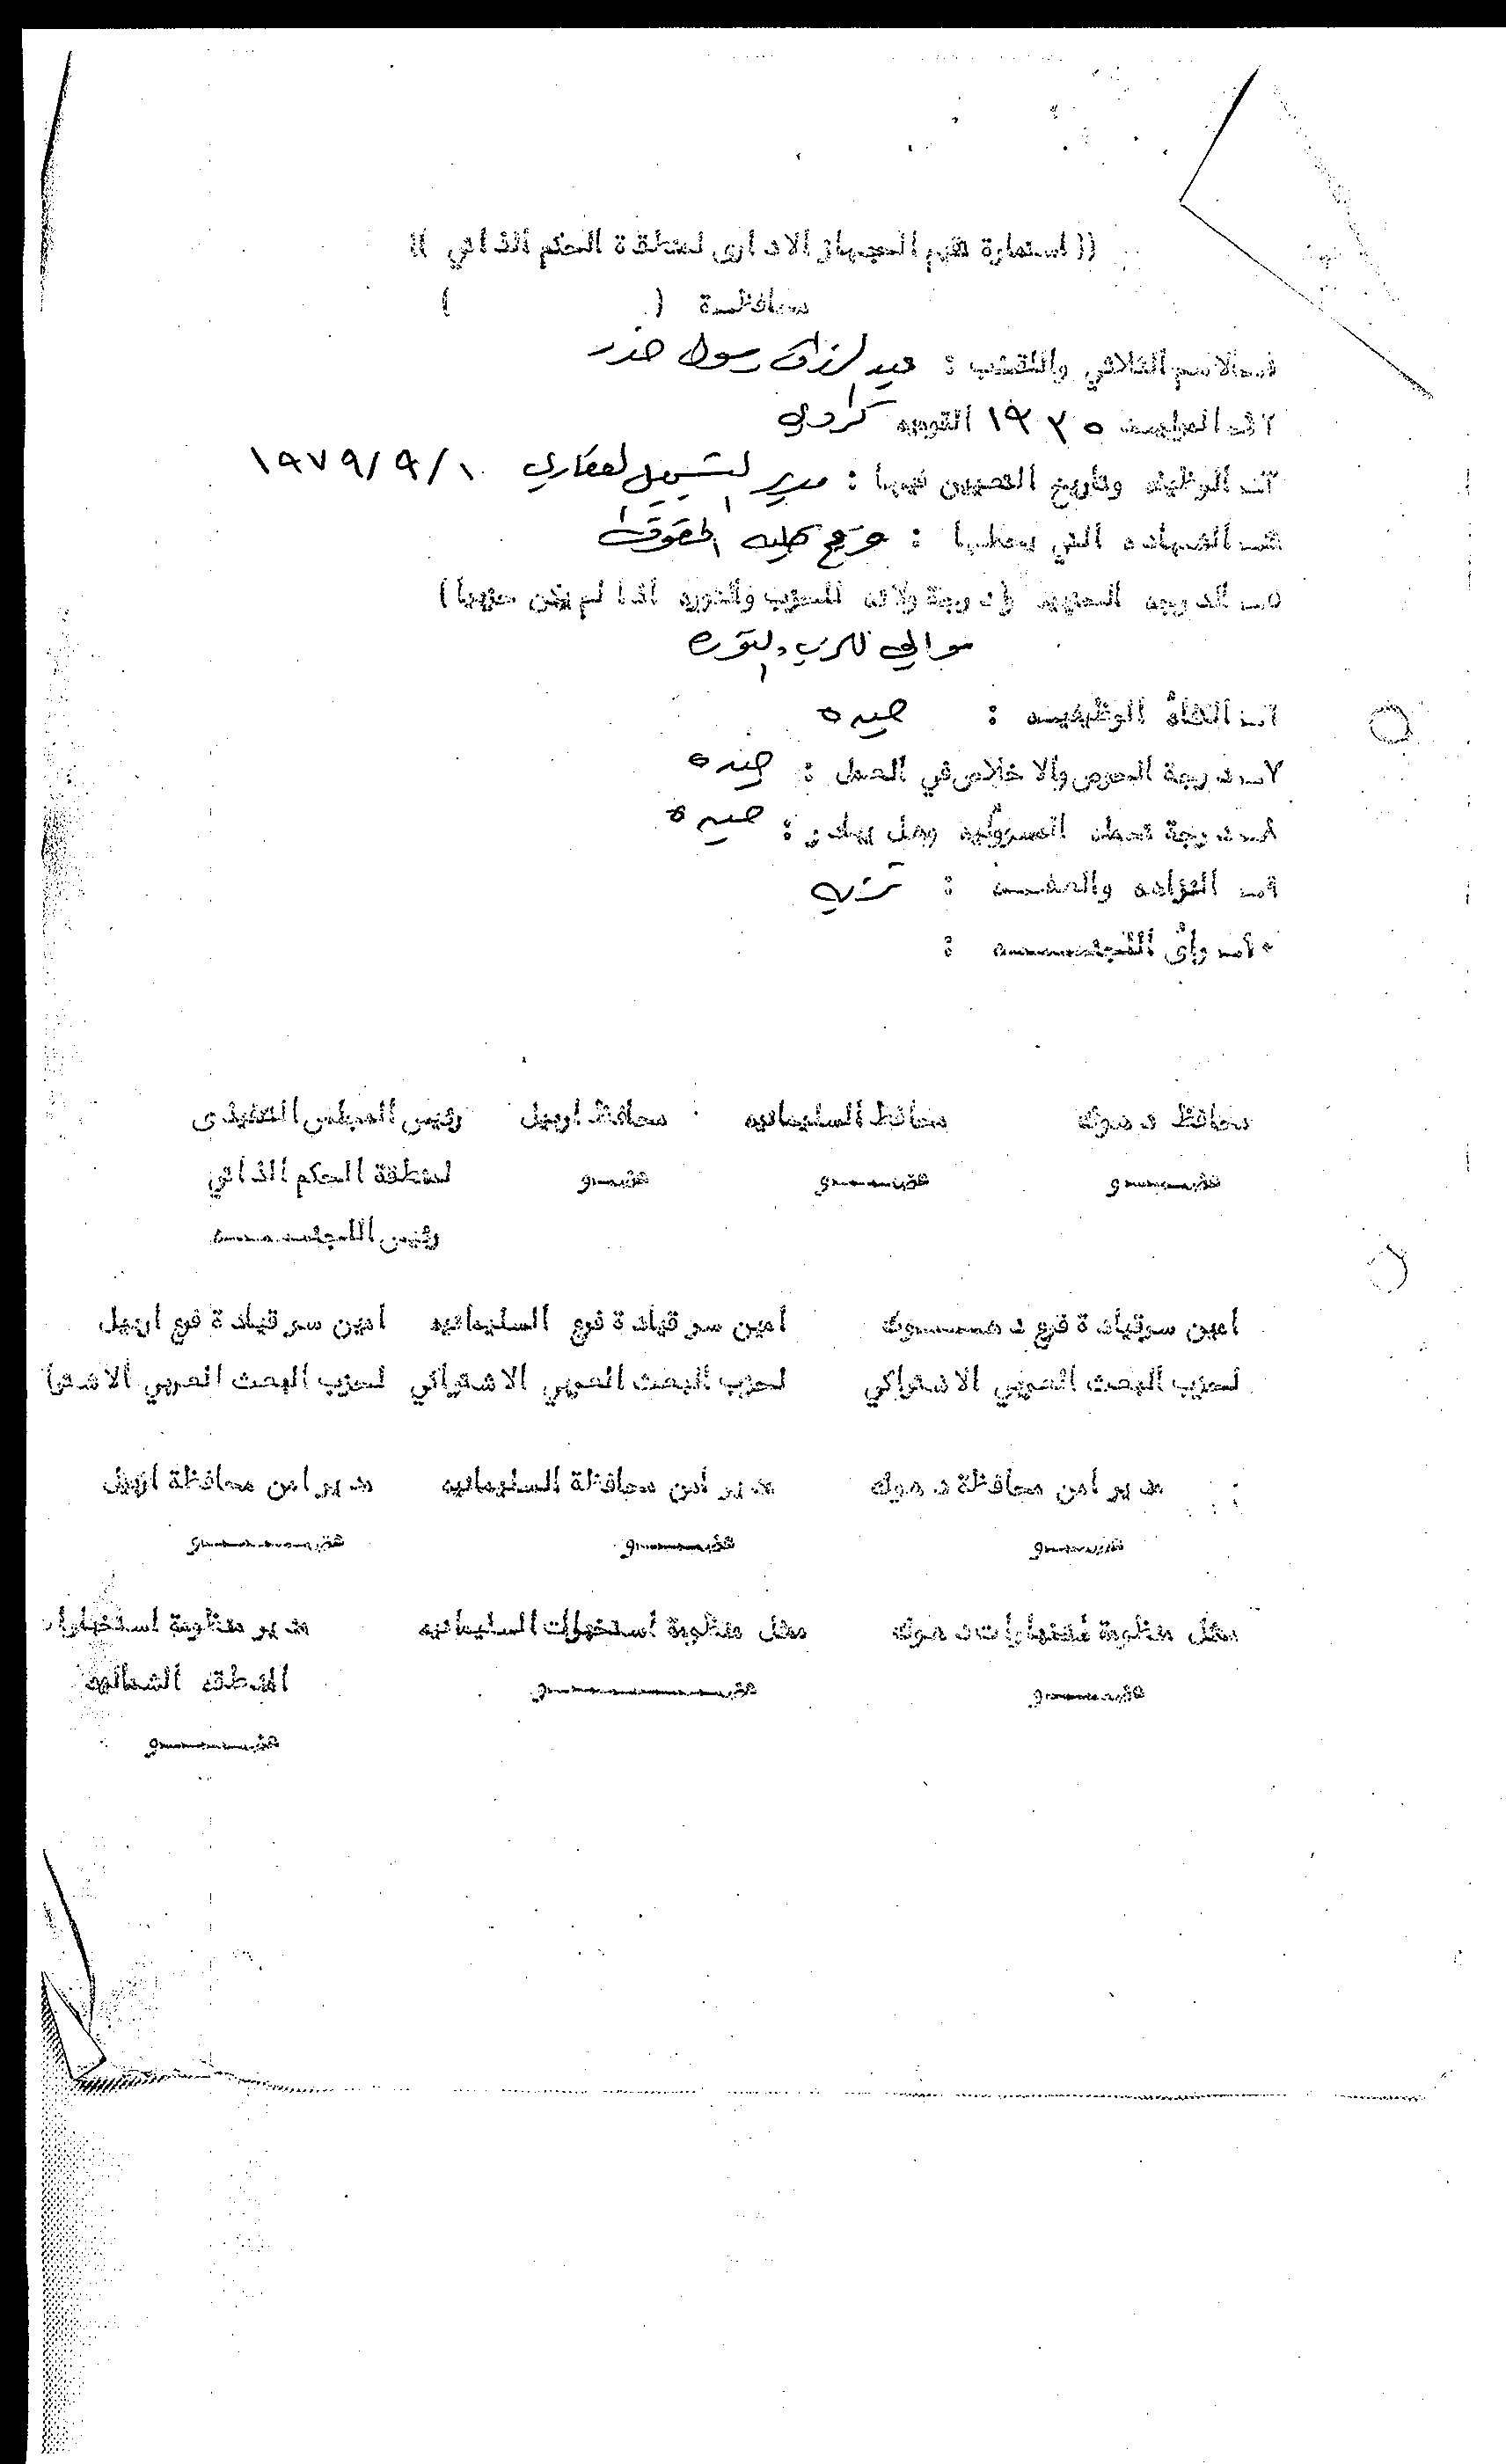 (( استمارة تقيم الجهاز الاداري لمنطقة الحكم الذاتي ))
محافظة (                    )
١ـ الاسم الثلاثي واللقب : عبد الرزاق رسول خدر
٢ـ المواليد ١٩٣٥ القوميه كردي
٣ـ الوظيفه وتاريخ التعيين فيها : مدير التسجيل العقاري ١٩٧٩/٩/١٠
٤ـ الشهاده التي يحملها : خريج كلية الحقوق
٥ـ الدرجه الحزبيه (درجة ولائه للحزب والثوره اذا لم يكن حزبيا)
موالي للحزب والثوره
٦ـ الكفاءة الوظيفيه : جيده
٧ـ درجة الحرص والاخلاص في العمل : جيده
٨ـ درجة تحمله المسؤوليه وهل يبادر : جيده
٩ـ النزاهه والعفه : نزيه
١٠ـ رأي اللجنه :
محافظ دهوك   محافظ السليمانيه   محافظ اربيل   رئيس المجلس التنفيذي
عضو   عضو   عضو   لمنطقة الحكم الذاتي
رئيس اللجنه
امين سر قيادة فرع دهوك   امين سر قيادة فرع السليمانيه   امين سر قيادة فرع اربيل
لحزب البعث العربي الاشتراكي   لحزب البعث العربي الاشتراكي   لحزب البعث العربي الاشترا
مدير امن محافظة دهوك   مدير امن محافظة السليمانيه   مدير امن محافظة اربيل
عضو   عضو   عضو
ممثل منظومة استخبارات دهوك   ممثل منظومة استخبارات السليمانيه   مدير منظومة استخبارات
المنطقه الشماليه
عضو   عضو
عضو